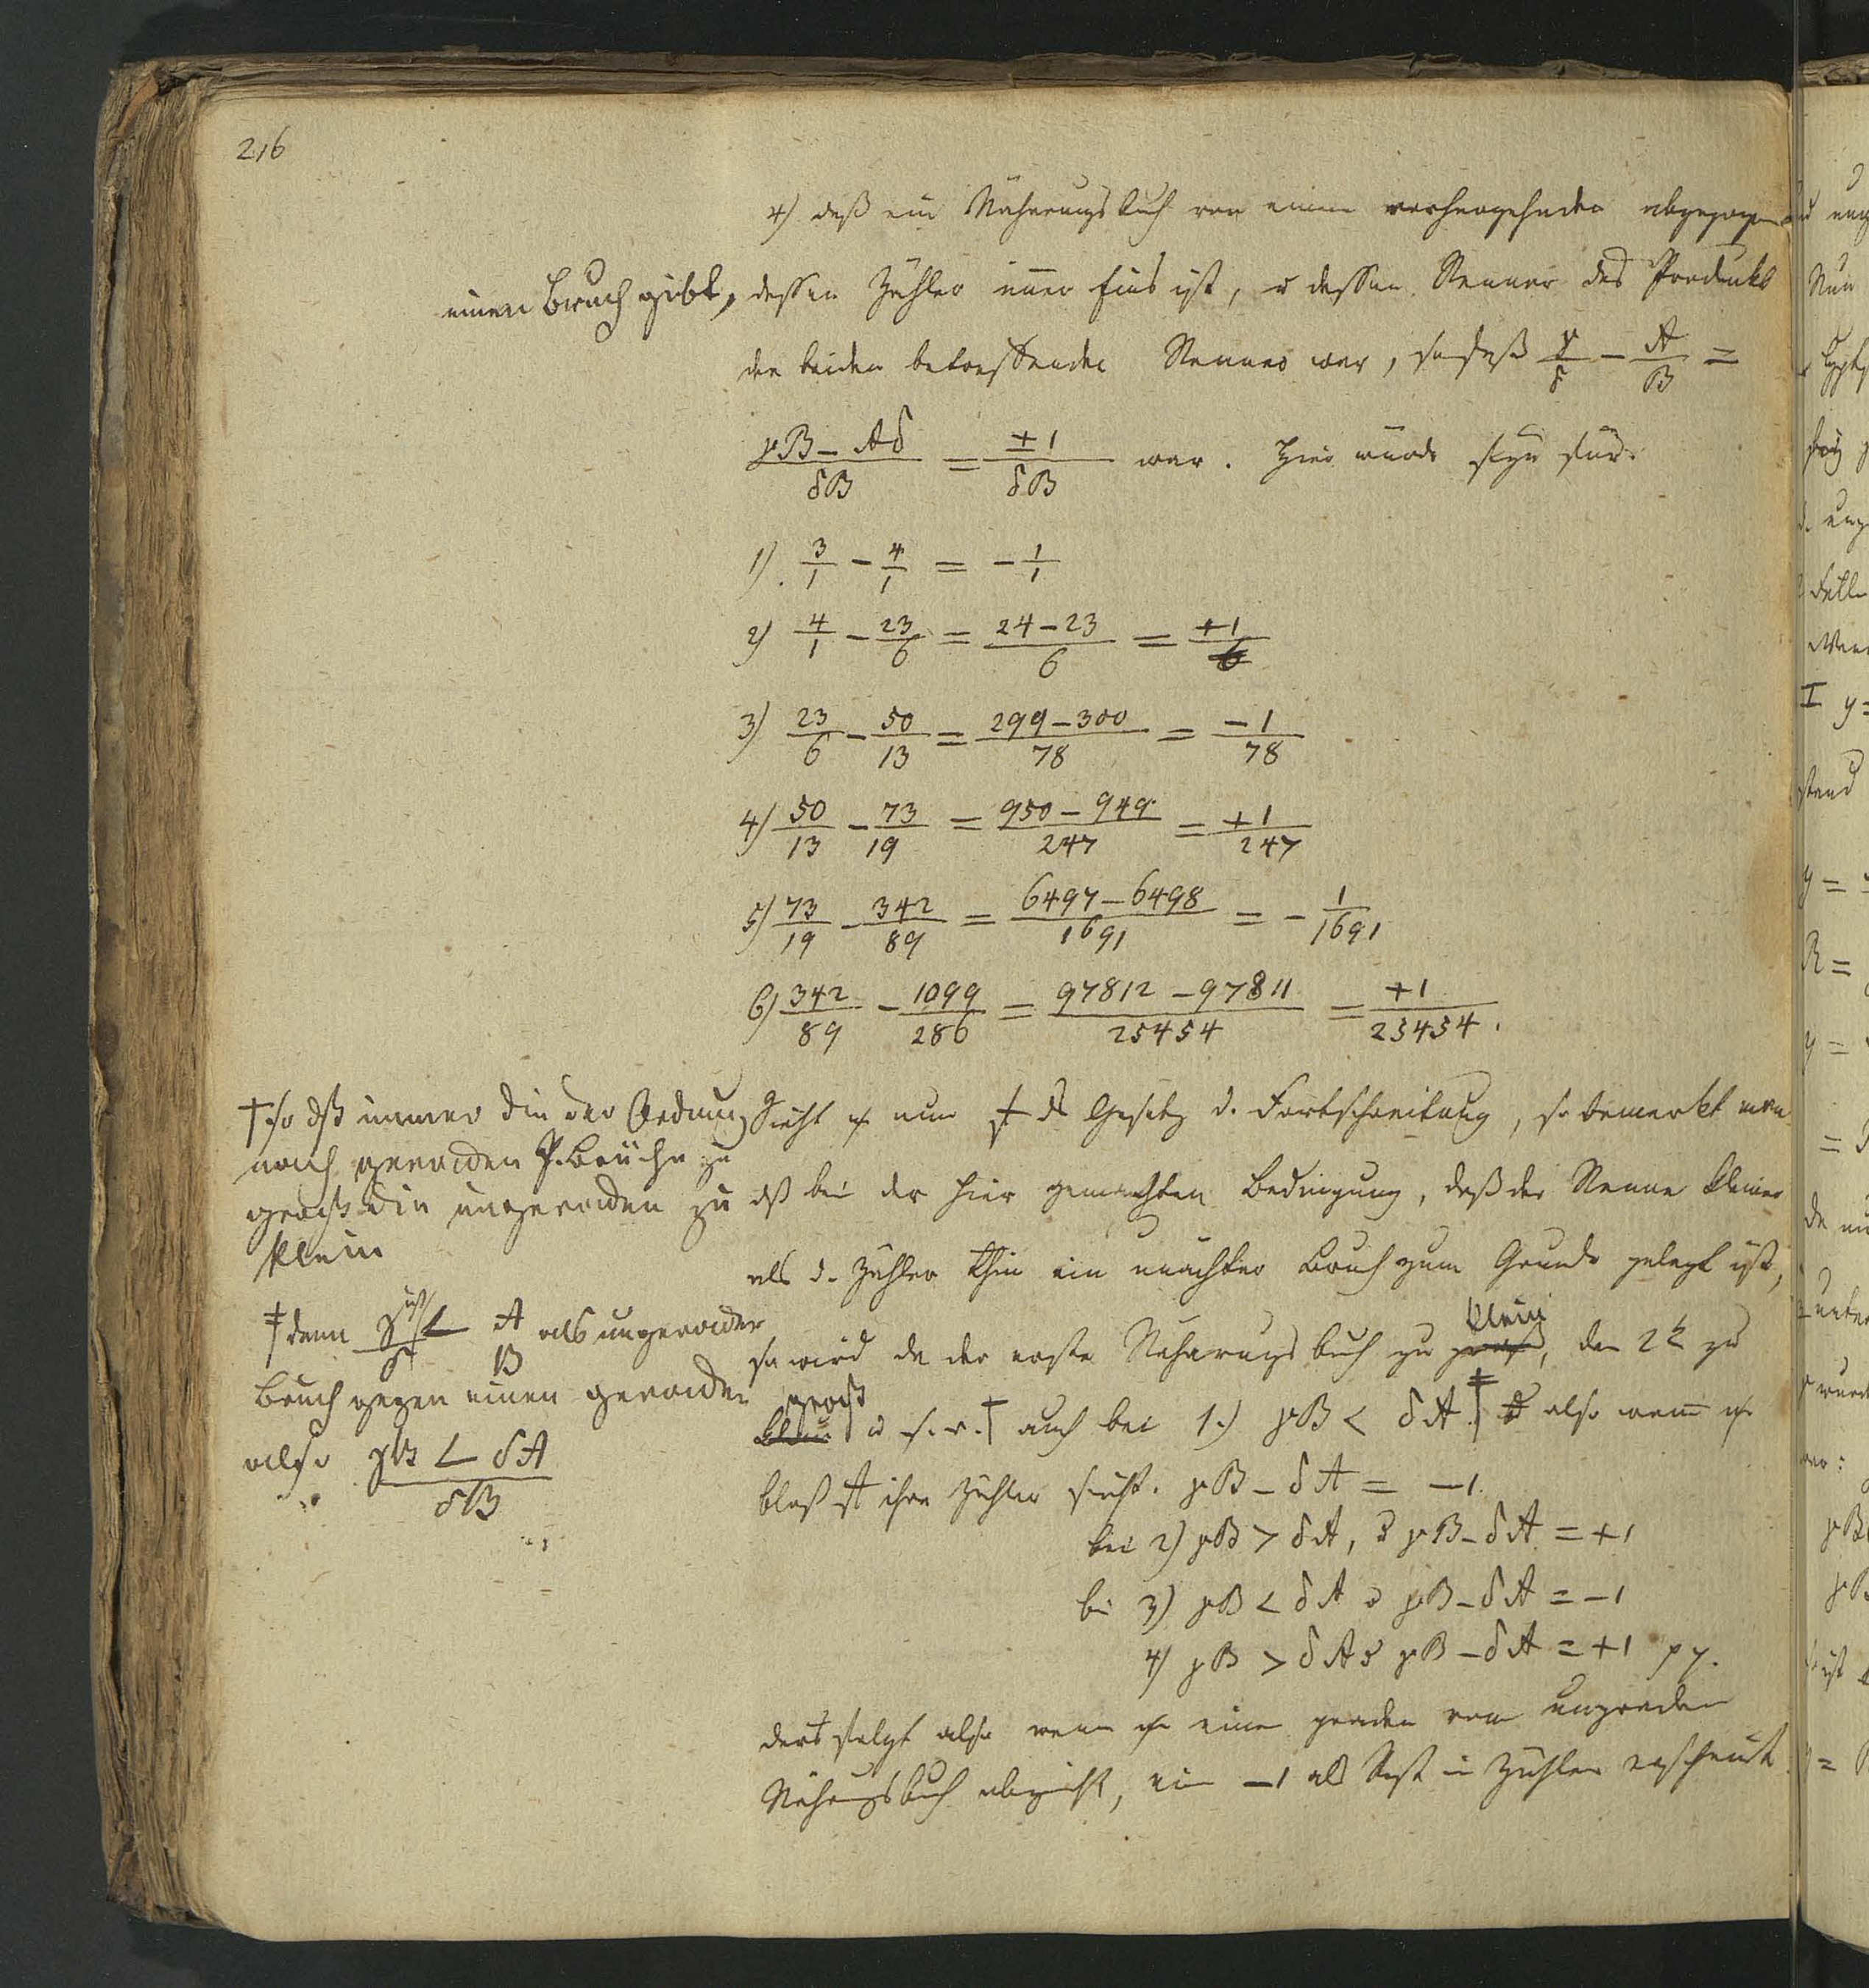 216
4) daß ein Näherungsbuch von einem vorhergehenden abgezogen
einen Bruch gibt, dessen Zähler immer Eins ist, u dessen Nenner das Produkt
der beiden betreffenden Nenner war, sodaß γ/δ − A/B =
(γB − Aδ)/δB = ±1/δB war. Hier würde seyn für:
1) 3/1 − 4/1 = − 1/1
2) 4/1 − 23/6 = (24−23)/6 = +1/6
3) 23/6 − 50/13 = (299−300)/78 = −1/78
4) 50/13 − 73/19 = (950−949)/247 = +1/247
5) 73/19 − 342/89 = (6497−6498)/1691 = − 1/1691
6) 342/89 − 1099/286 = (97812−97811)/25454 = +1/25454.
Sieht nun Gesetz d. Fortschreitung, so bemerkt man
dß bei der hier gemachten Bedingung, daß der Nenner kleiner
als d. Zähler ein unächter Bruch zum Grunde gelegt ist,
so wird da der erste Näherungsbuch zu groß klein, der 2te zu
klein groß u s. w. † auch bei 1.) γB < δA. ‡ also wenn
bloß ihre Zähler sieht. γB − δA = −1.
bei 2) γB > δA, u γB − δA = +1
bei 3) γB < δA u γB − δA = −1
4) γB > δA u γB − δA = +1 pp.
folgt also wenn einen geraden vom ungraden
Näherungsbuch abzieht, ein −1 als Rest im Zähler erscheint
† so dß immer die der Ordnung
nach geraden P. Brüche zu
groß die ungeraden zu
klein
‡ denn γ/δ ist < A/B als ungerader
Bruch gegen einen geraden
also γB < δA
δB